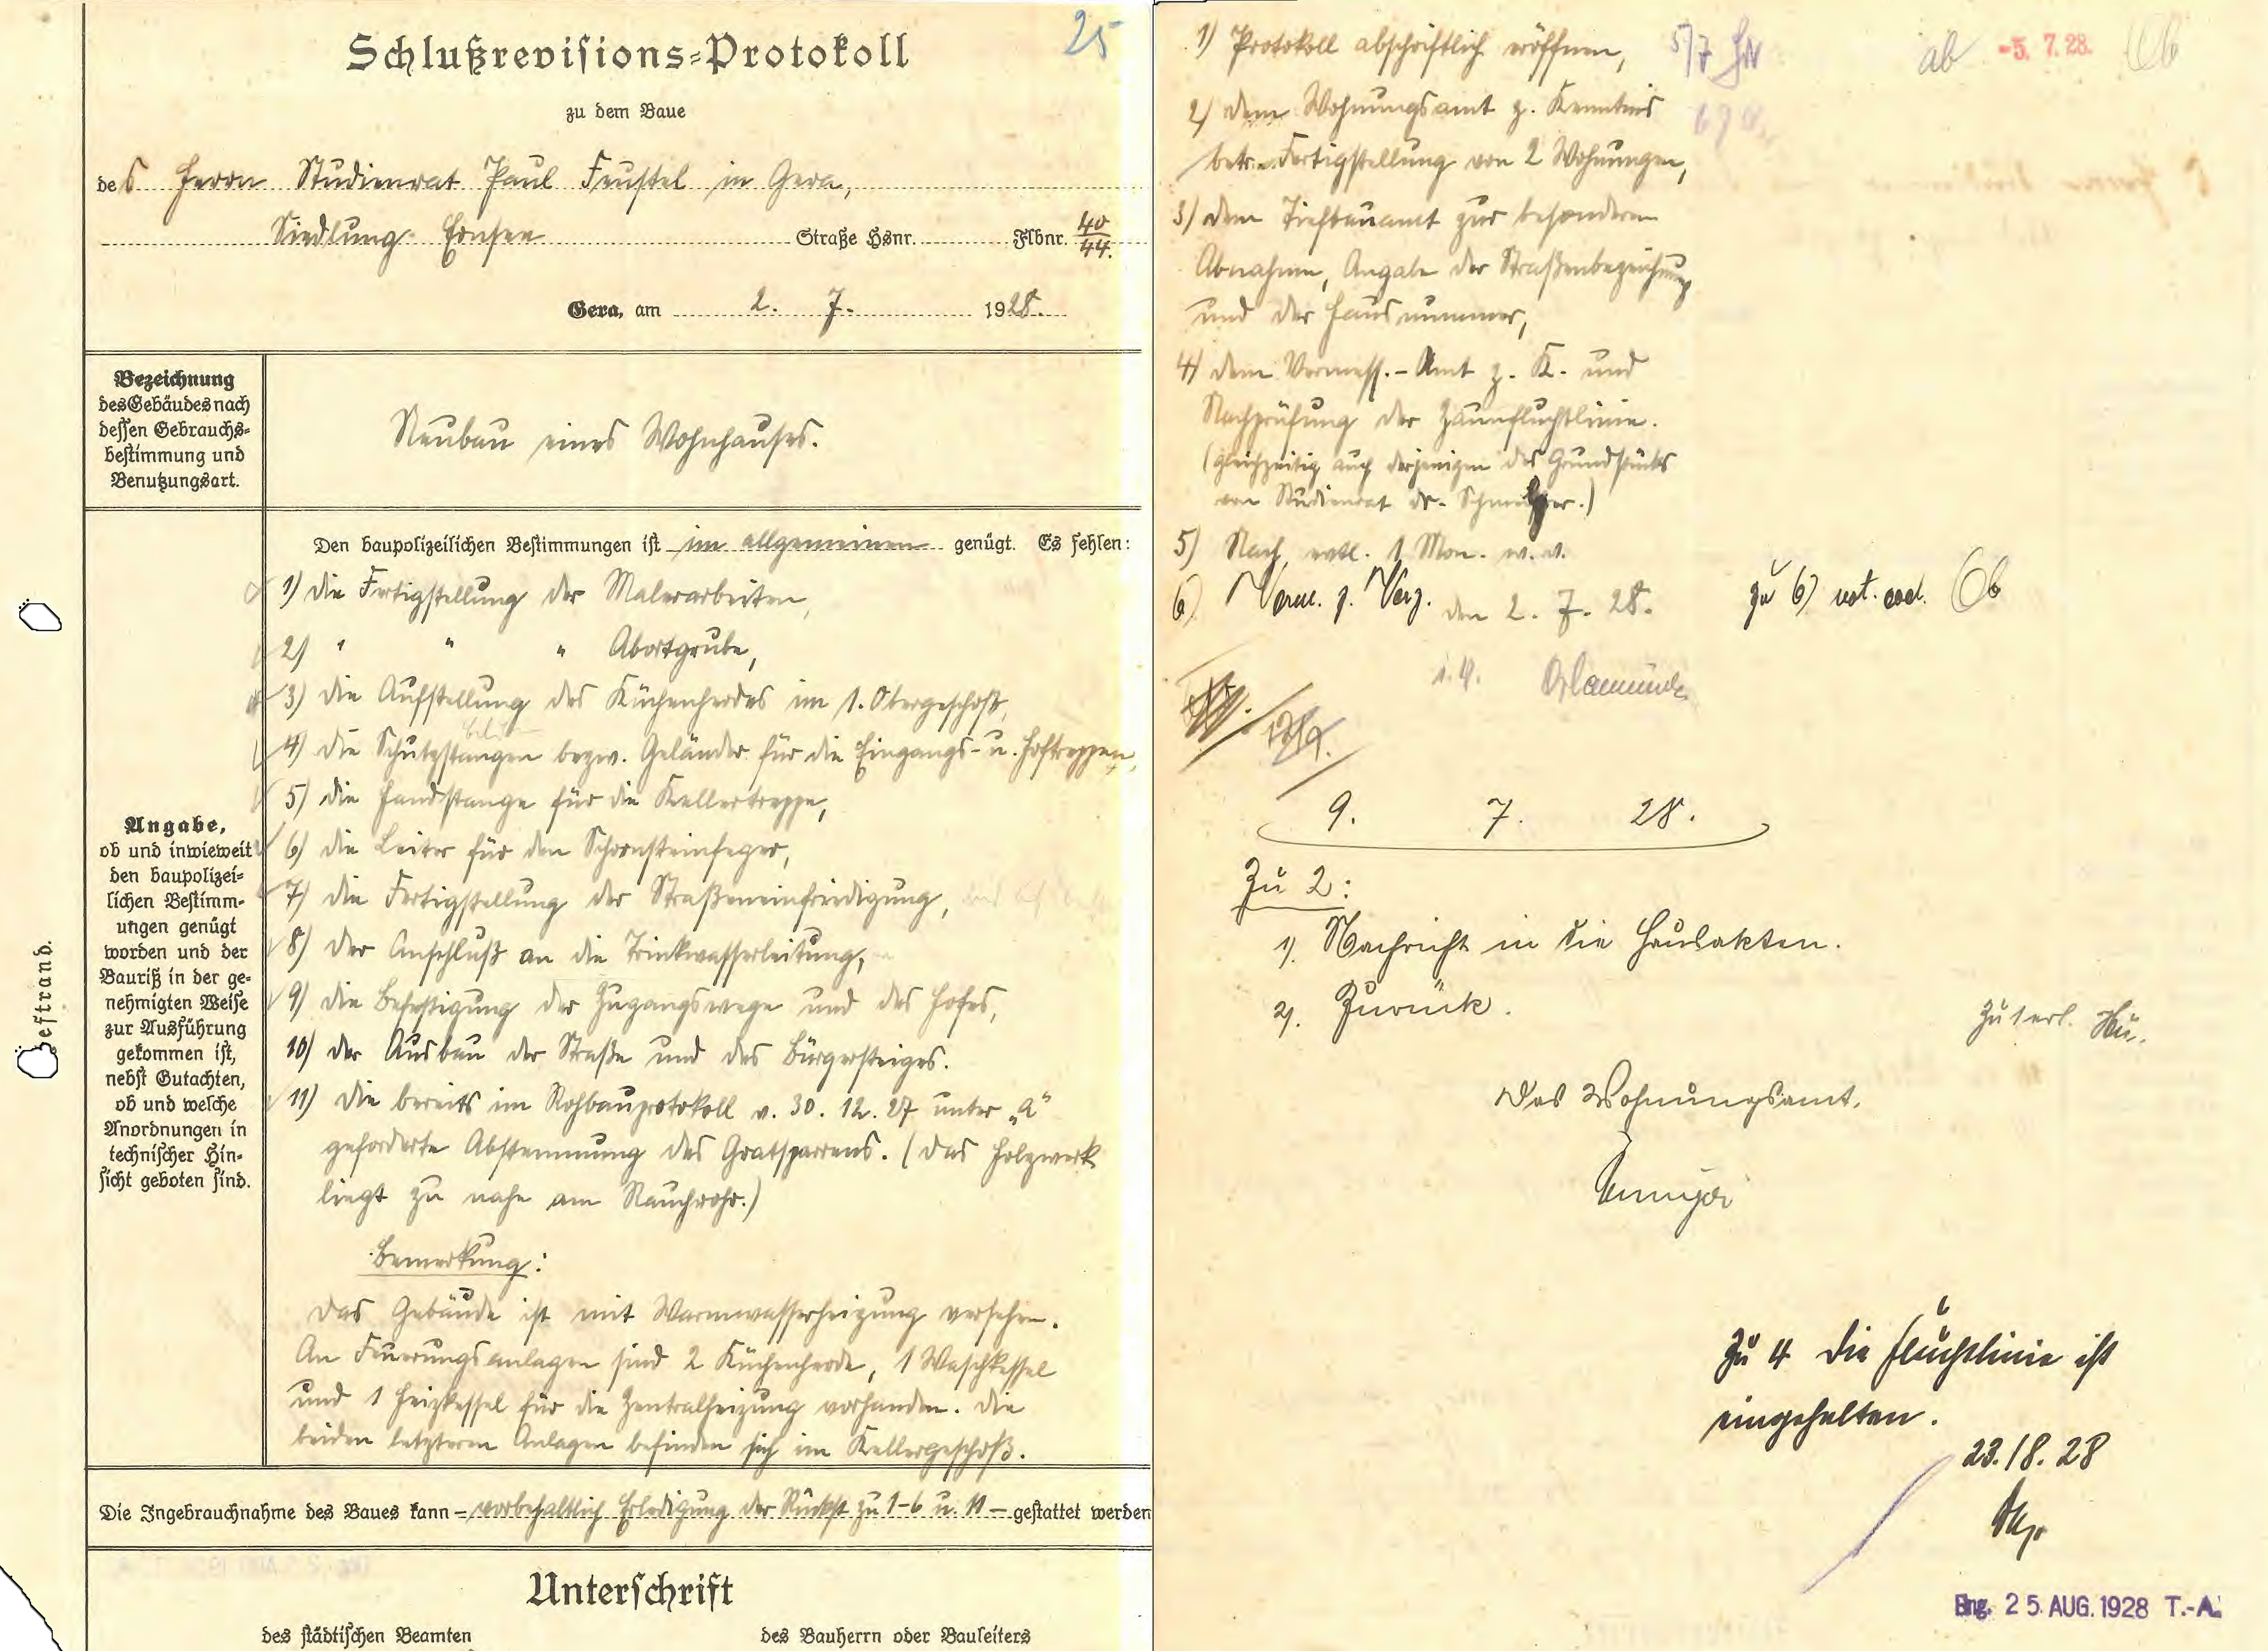 25
Schlußrevisions-Protokoll
zu dem Baue
des Herrn Studienrat Paul Feustel in Gera,
Siedlung Ernsee Straße Hsnr. Flbnr. 40/44.
Gera, am 2. 7. 1928.
Bezeichnung
des Gebäudes nach
dessen Gebrauchs-
bestimmung und
Benutzungsart.
Neubau eines Wohnhauses.
Den baupolizeilichen Bestimmungen ist im allgemeinen genügt. Es fehlen:
1) die Fertigstellung der Malerarbeiten,
2) " " " Abortgrube,
3) die Aufstellung des Küchenherdes im 1. Obergeschoß,
4) die Schutzstangen bezw. Geländer für die Eingangs- u. Hoftreppen,
5) die Handstange für die Kellertreppe,
6) die Leiter für den Schornsteinfeger,
7) die Fertigstellung der Straßeneinfriedigung,
8) der Anschluß an die Trinkwasserleitung,
9) die Befestigung der Zugangswege und des Hofes,
10) der Ausbau der Straße und des Bürgersteiges.
11) die bereits im Rohbauprotokoll v. 30. 12. 27 unter „a"
geforderte Abstemmung des Gratsparrens. (Das Holzwerk
liegt zu nahe am Rauchrohr.)
Bemerkung:
Das Gebäude ist mit Warmwasserheizung versehen.
An Feuerungsanlagen sind 2 Küchenherde, 1 Waschkessel
und 1 Heizkessel für die Zentralheizung vorhanden. Die
beiden letzteren Anlagen befinden sich im Kellergeschoß.
Angabe,
ob und inwieweit
den baupolizei-
lichen Bestimm-
ungen genügt
worden und der
Bauriß in der ge-
nehmigten Weise
zur Ausführung
gekommen ist,
nebst Gutachten,
ob und welche
Anordnungen in
technischer Hin-
sicht geboten sind.
Heftrand.
Die Ingebrauchnahme des Baues kann – vorbehaltlich Erledigung der Rückst zu 1-6 u. 11 – gestattet werden
Unterschrift
des städtischen Beamten des Bauherrn oder Bauleiters
1) Protokoll abschriftlich eröffnen, 5/7 ab -5. 7. 28.
2) dem Wohnungsamt z. Kenntnis
betr. Fertigstellung von 2 Wohnungen,
3) dem Tiefbauamt zur besonderen
Abnahme, Angabe der Straßenbezeichnung
und der Hausnummer,
4) dem Vermess.-Amt z. K. und
Nachprüfung der Zaunfluchtlinie.
(gleichzeitig auch derjenigen des Grundstücks
von Studienrat Dr.
5) Nach 1 Mon. w. v.
6) z. Verz. den 2. 7. 28. zu 6)
9. 7. 28.
Zu 2:
1). Nachricht in die Hausakten.
2). Zurück.
Zu 1 erl.
Das Wohnungsamt.
Zu 4 die Fluchtlinie ist
eingehalten.
23./8. 28
Eing. 25. AUG. 1928 T.-A.